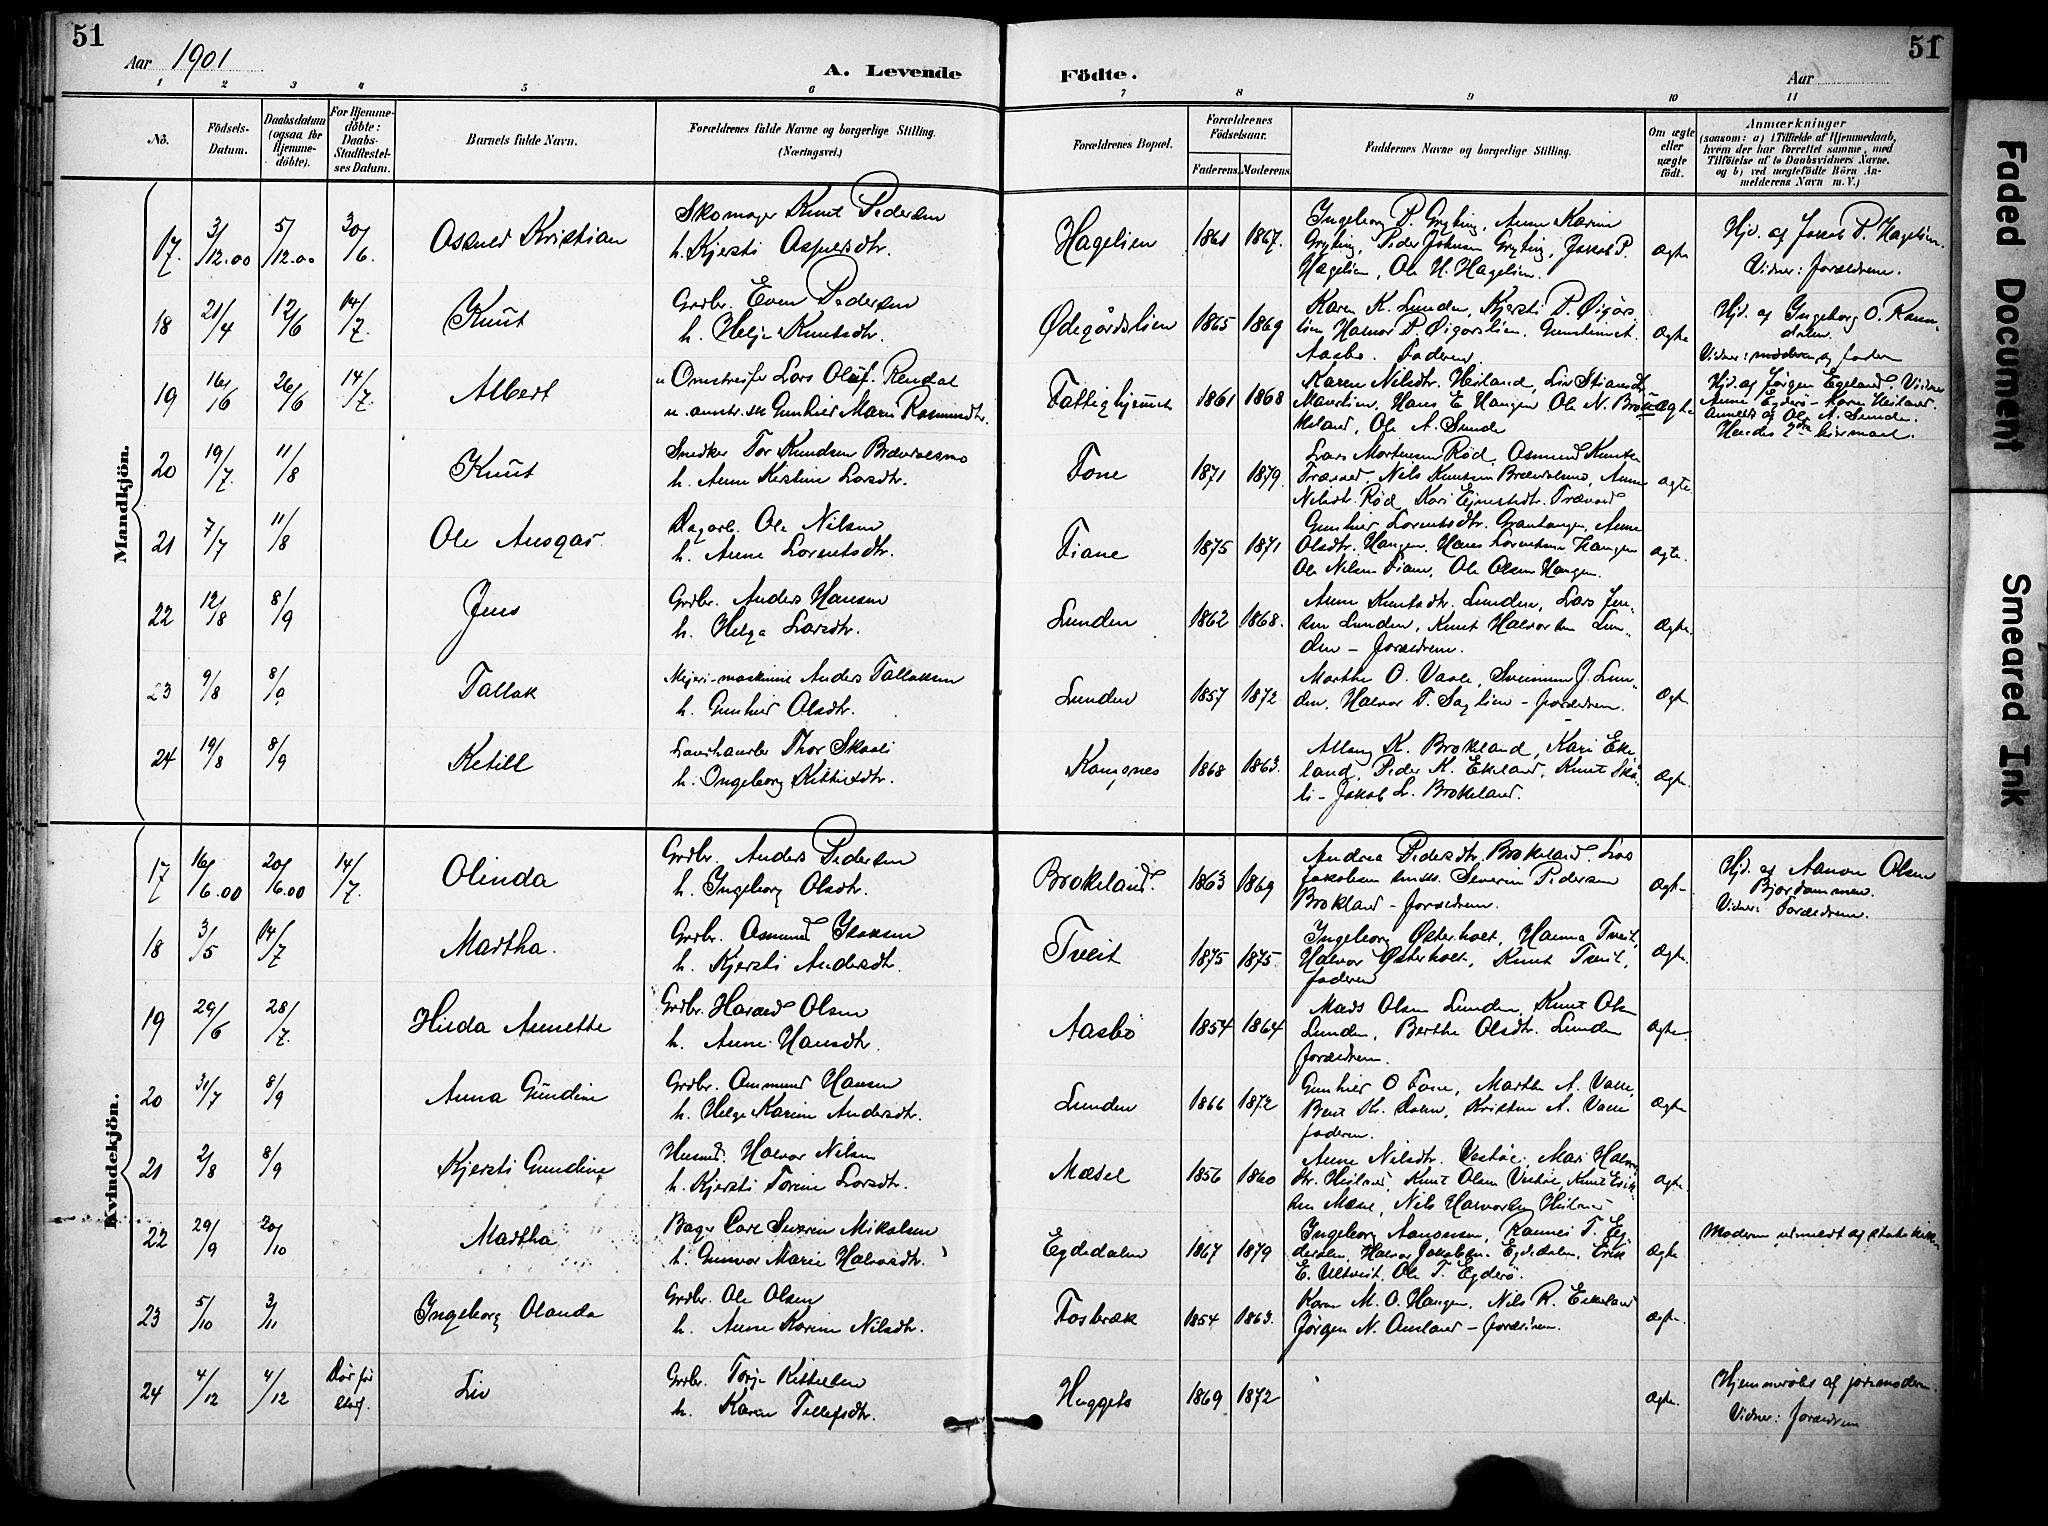 51
Aar 1901
A. Levende
Födte.
Aar
51
1 2 3 4 5 6 7 8 9 10 11
No.
Födsels-
Datum.
Daabsdatum
(ogsaa for
Hjemme-
döbte).
For Hjemme-
döbte:
Daabs-
Stadfestel-
ses Datum.
Barnets fulde Navn.
Forældrenes fulde Navne og borgerlige Stilling.
(Næringsvei.)
Forældrenes Bopæl.
Forældrenes
Födselsaar.
Faderens. Moderens.
Faddernes Navne og borgerlige Stilling.
Om ægte
eller
uægte
født.
Anmærkninger
(saasom: a) i Tilfælde af Hjemmedaab,
hvem der har forrettet samme, med
Tilföielse af to Daabsvidners Navne.
og b) ved uægtefödte Börn An-
melderens Navn m. V.)
Mandkjön.
17. 3/12.00 5/12.00 30/6. Kristian
Skomager Knut Pedersen
h. Kjersti
Hagelien 1861 1867.
Ingeborg P. Gryting, Anne Karine
Gryting, Peder Johnsen Gryting, Jakob P.
Hagelien, Ole H. Hagelien.
Ægte
Hjd. af Jakob P. Hagelien.
Vidner: forældrene.
18 21/4 12/6 14/7. Knut
Grdbr. Even Pedersen
h. Helje Knutsdtr.
Ødegårdslien 1865 1869
Karen K. Lunden, Kjersti P. Øigårs-
lien Halvor P. Øigårslien.
Aasbø. Faderen.
Ægte
Hjd. af Ingeborg O.
Vidner: moderen og faderen
19 16/6 26/6 14/7. Albert
Lars Oluf Rendal
Gunhild Marie Rasmusdtr.
Fattighjemmet 1861 1868
Karen Nilsdtr. Heiland, Liv
Hans E Haugen Ole N.
Ole A. Sunde
Ægte
Hjd. af Jørgen Egeland. Vidner
Anne Egderø - Karen Heiland.
Ole A. Sunde.
Hendes 2det
20 19/7. 11/8 Knut
Snedker Tor Knudsen
h. Anne Kirstine Larsdtr.
Fone 1871 1879.
Lars Mortensen Rød, Osmund Knuts.
Nils Knutsen Anne
Nilsdt. Rød, Kari
ægte.
21 7/7 11/8 Ole Ansgar
Dagarb. Ole Nilsen
h. Anne Lorentsdtr.
Fiane 1875 1871
Gunhild Lorentsdtr. Anne
Olsdtr. Haugen. Hans Lorentsen Haugen
Ole Nilsen Fiane, Ole Olsen Haugen.
ægte.
22 12/8 8/9 Jens
Grdbr. Anders Hansen
h. Helga Larsdtr.
Lunden 1862 1868.
Anne Knutsdtr. Lunden, Lars Jen-
sen Lunden, Knut Halvorsen Lun-
den - forældrene.
Ægte.
23 9/8 8/9 Tallak
Mejeri-maskinist Anders Tallaksen
h. Gunhild Olsdtr.
Lunden 1857 1872
Marthe O. Valle, J. Lun-
den, Halvor T. Saglien - forældrene.
Ægte
24 19/8 8/9 Ketill
Landhandler Thor Skaali
h. Ongeborg Kittilsdtr.
1868 1863.
Allaug K. Brokeland, Kari Eke-
land, Peder K. Ekeland, Knut Skå-
li - Jakob L. Brokeland.
Ægte.
Kvindekjön.
17 16/6.00 20/6.00 14/7. Olinda
Grdbr. Anders Pedersen
h. Ingeborg Olsdtr.
Brokeland. 1863 1869
Andrea Pedersdtr. Brokeland. Lars
Jakobsen Severin Pedersen
Brokland - forældrene.
Ægte
Hjd. af Aanon Olsen
Bjordammen.
Vidner: Forældrene.
18 3/5 14/7 Martha.
Grdbr. Osmund
h. Kjersti Andersdtr.
Tveit 1875 1875.
Ingeborg Østerholt, Hanna Tveit,
Halvor Østerholt, Knut Tveit,
faderen
Ægte.
19 29/6 28/7. Hilda Annette
Grdbr. Harald Olsen
h. Anne Hansdtr.
Aasbø 1854 1864
Mads Olsen Lunden, Knut Olsen
Lunden, Berthe Olsdtr. Lunden
forældrene.
Ægte.
20 31/7 8/9 Anna Gundine
Grdbr. Ommund Hansen
h. Helge Karine Andersdtr.
Lunden 1866 1872
Gunhild O Fone, Marthe A. Valle,
Kristen A. Valle
faderen.
Ægte
21 2/8 8/9 Kjersti Gundine
Husmd. Halvor Nilsen
h. Kjersti Torine Larsdtr.
Mæsel 1856 1860
Anne Nilsdtr. Vestøl, Mari Halvors-
dtr. Heiland, Knut Olsen Vestøl, Knut Erik-
sen Mæsel, Nils Halvorsen Heiland
Ægte.
22 29/9 20/10 Martha
Bager Carl Severin Mikalsen
h. Gunvor Marie Halvorsdtr.
Egdedalen 1867 1879
Ingeborg Aanonsen, T. Eg-
dedalen, Halvor Jakobsen Egdedalen, Erik
E. Ole T. Egderø.
Ægte
Moderen udmeldt af statskirken
23 5/10 3/11 Ingeborg Olanda
Grdbr. Ole Olsen
h. Anne Karine Nilsdtr.
Fosbræk 1854 1863.
Karen M. O. Haugen, Nils R. Eskeland
Jørgen N. Omland - forældrene.
Ægte.
24 4/12 4/12 Død før
Liv
Grdbr. Torje Kittilsen
h. Karen Tellefsdtr.
1869 1872
Ægte.
Hjemmedøbt af jordmoderen.
Vidner: forældrene.
Faded Document
Smeared Ink